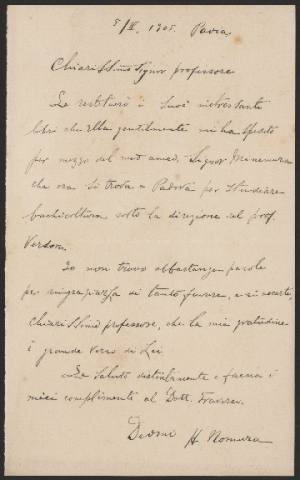 5/II. 1905. Pavia
Chiarissimo Signor professore
Le restituii i Suoi interessanti
libri che Ella gentilmente mi ha spedito
per mezzo del mio amico, Signor
che ora si trova a Padova per studiare
bachicoltura sotto la direzione del prof.
Verson.
Io non trovo abbastanza parole
per ringraziarLa di tanto favore, e si accerti,
Chiarissimo professore, che la mia gratitudine
è grande verso di Lei
La saluto distintamente e faccia i
miei complimenti al Dott.
Devmo H. Nomura